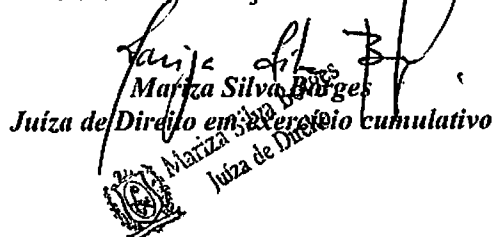 Mariza Silva Borges
Juíza de Direito em exercício cumulativo
Mariza Silva Borges
Juíza de Direito